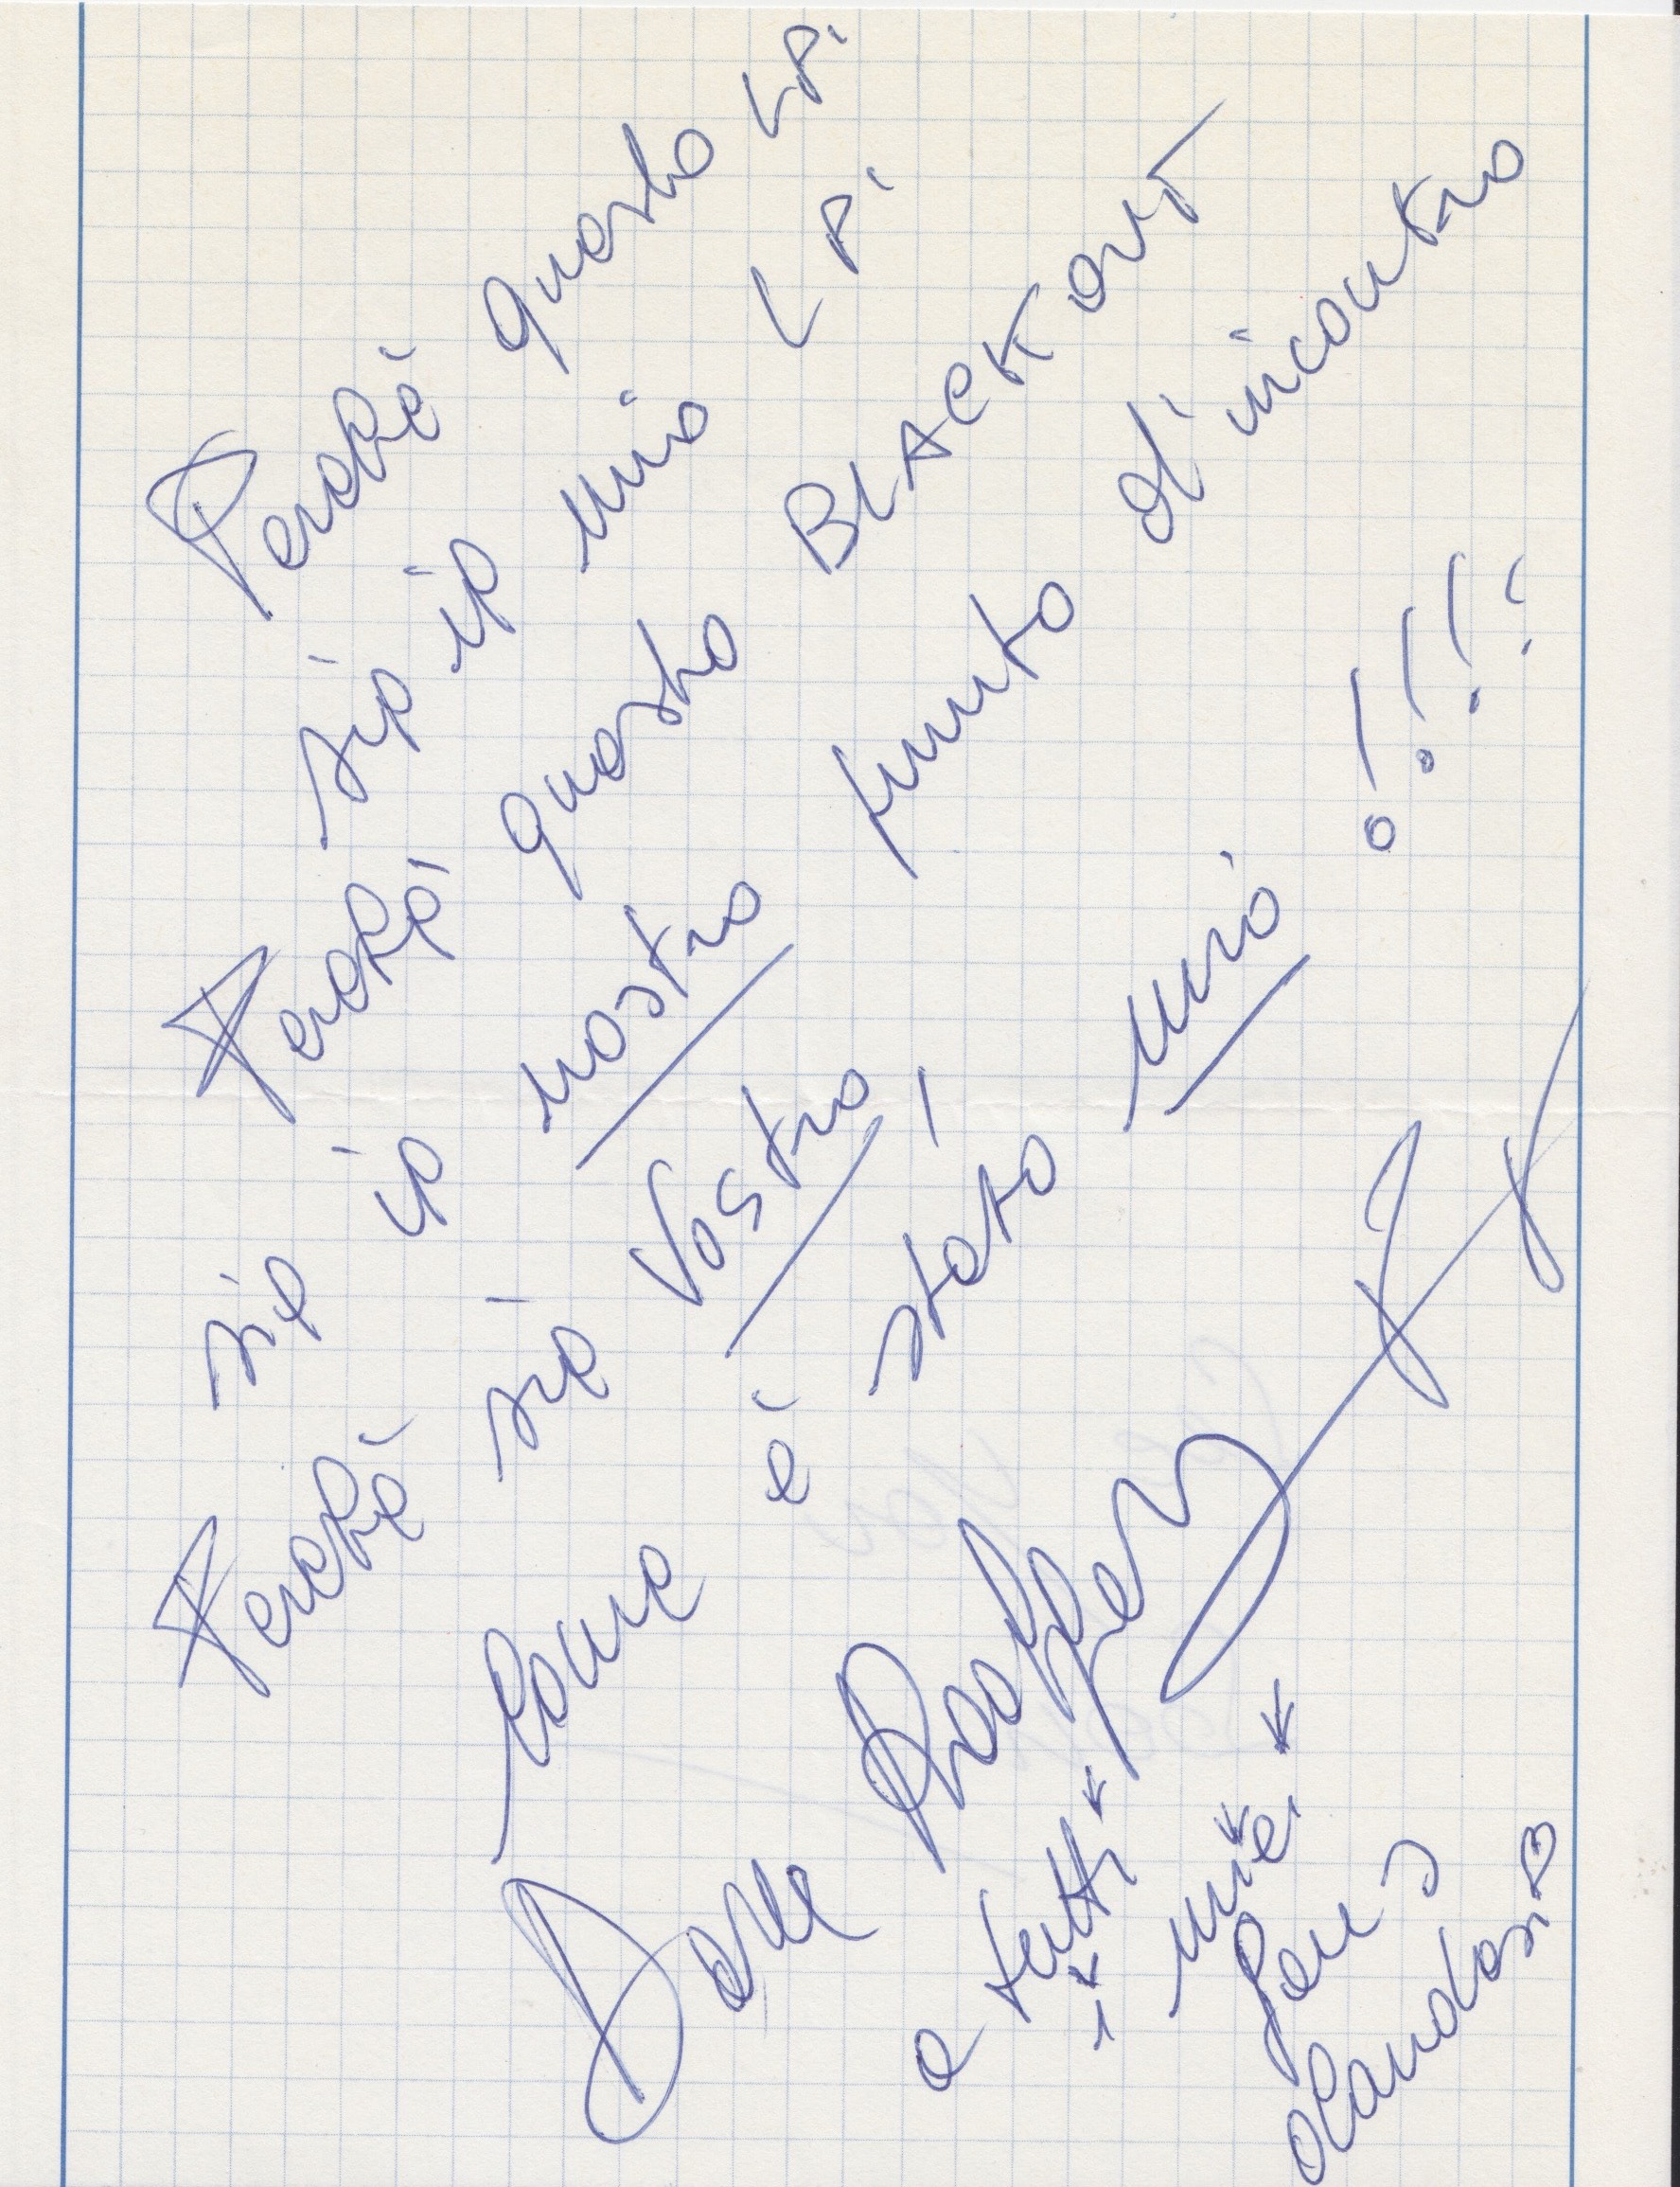 Perché questo LP.
sia il mio LP.
Perché questo BLACKOUT
sia il nostro punto d'incontro
Perché sia Vostro
come è stato mio !!!!
a tutti
i miei
fans
olandesi